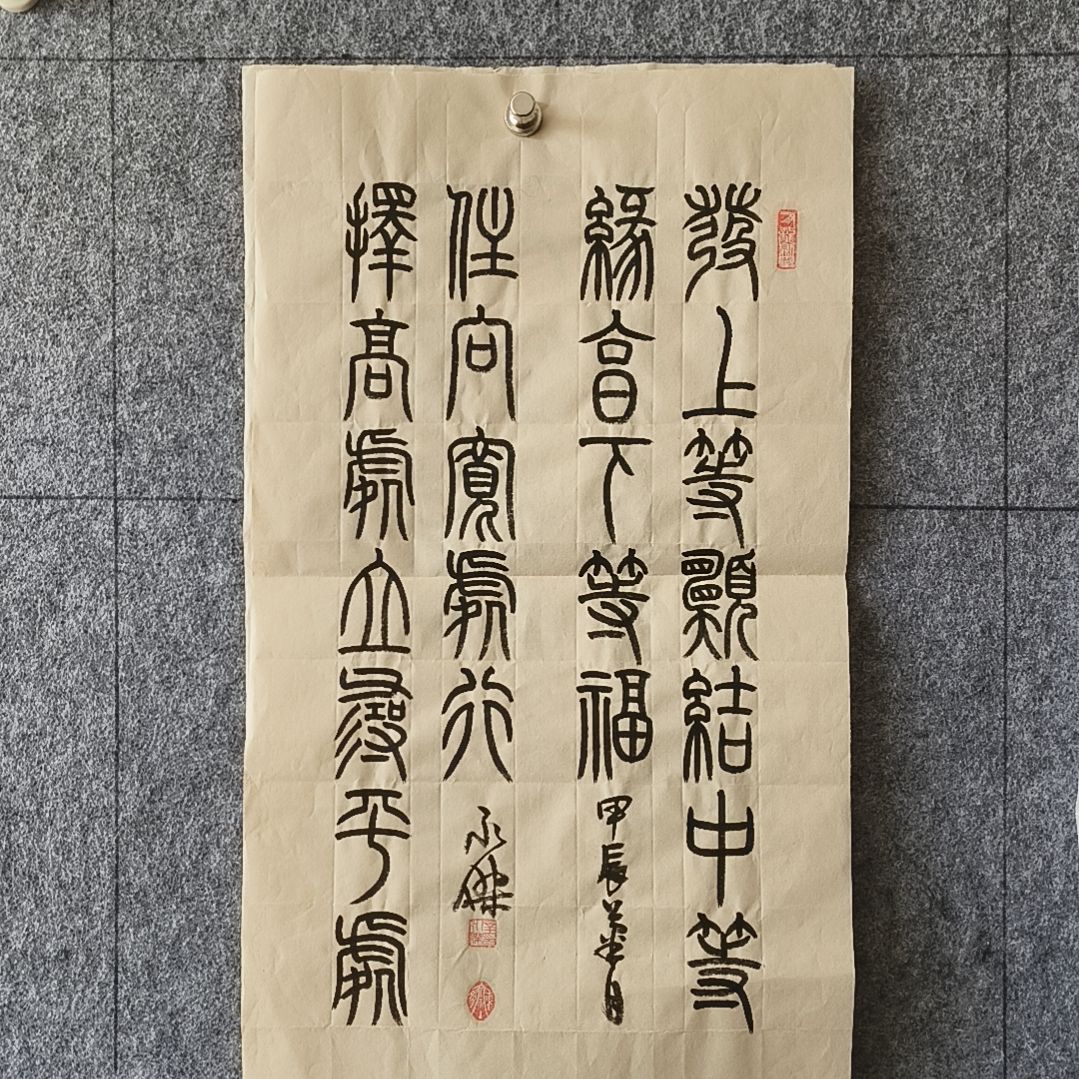 發上等願結中等
緣享下等福
甲辰 月
擇高處立尋平處
住向寬處行
永傑